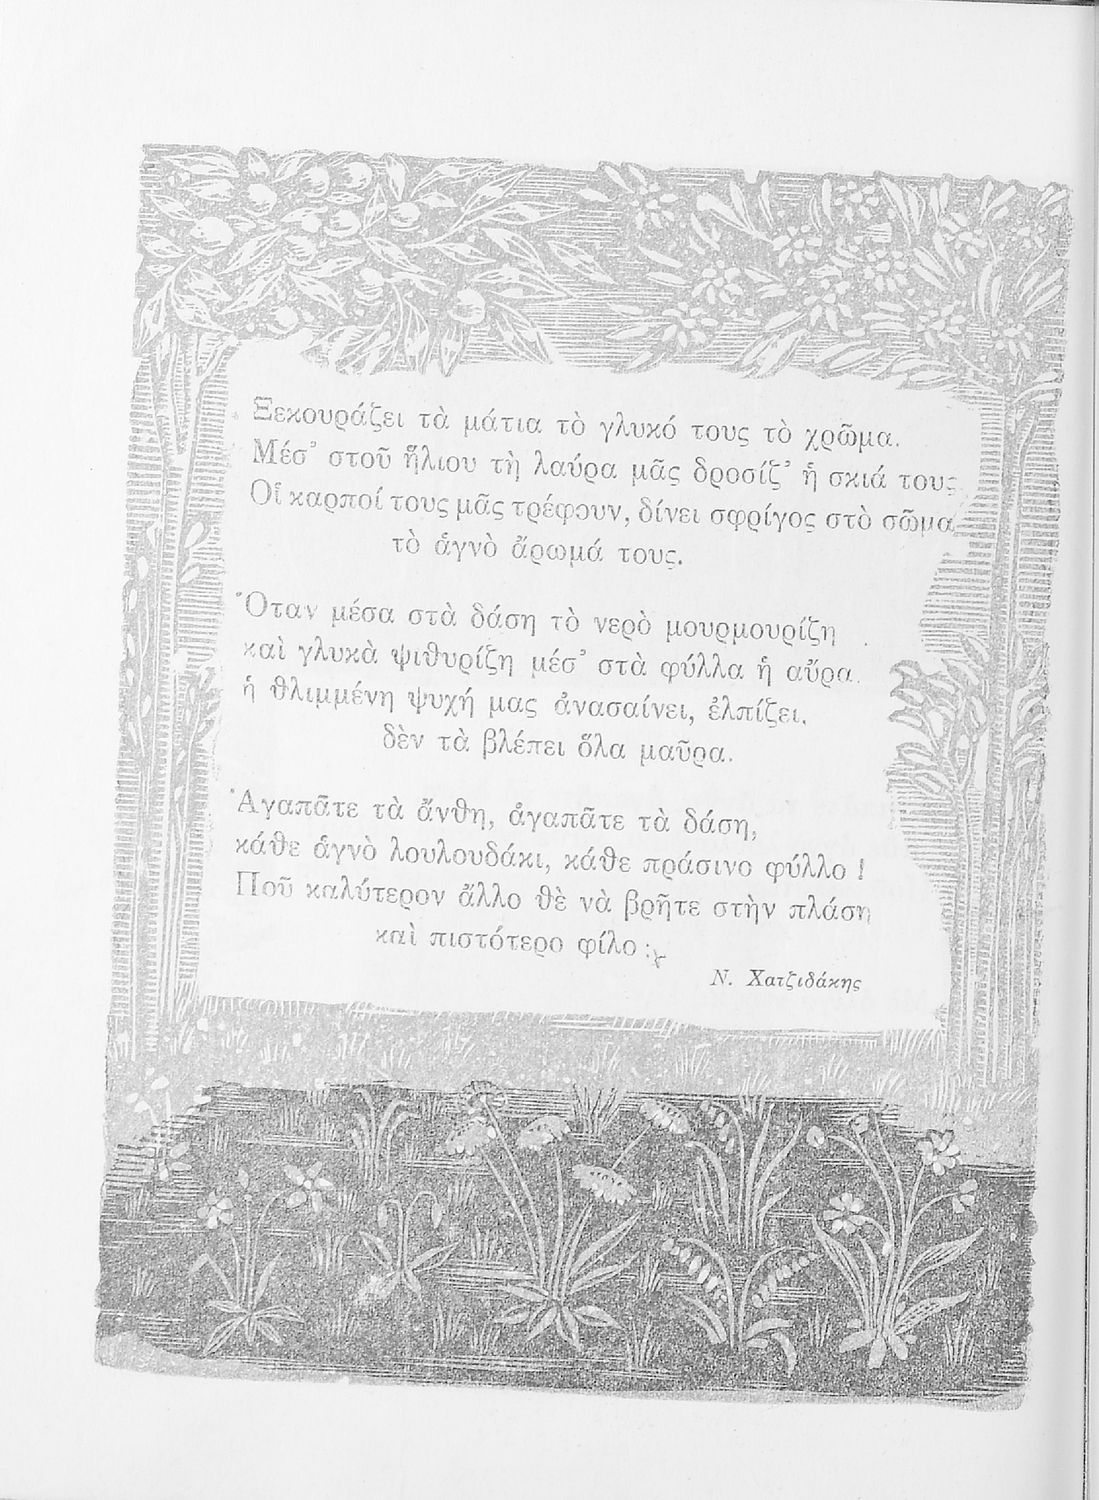 Ξεκουράζει τὰ μάτια τὸ γλυκό τους τὸ χρῶμα.
Μέσ’ στοῦ ἥλιου τὴ λαύρα μᾶς δροσίζ’ ἡ σκιά τους.
Οἱ καρποί τους μᾶς τρέφουν, δίνει σφρίγος στὸ σῶμα
τὸ ἁγνὸ ἄρωμά τους.
Ὅταν μέσα στὰ δάση τὸ νερὸ μουρμουρίζη
καὶ γλυκὰ ψιθυρίζη μέσ’ στὰ φύλλα ἡ αὔρα.
ἡ θλιμμένη ψυχή μας ἀνασαίνει, ἐλπίζει.
δὲν τὰ βλέπει ὅλα μαῦρα.
Ἀγαπᾶτε τὰ ἄνθη, ἀγαπᾶτε τὰ δάση,
κάθε ἁγνὸ λουλουδάκι, κάθε πράσινο φύλλο !
Ποῦ καλύτερον ἄλλο θὲ νὰ βρῆτε στὴν πλάση
καὶ πιστότερο φίλο ;
Ν. Χατζιδάκης